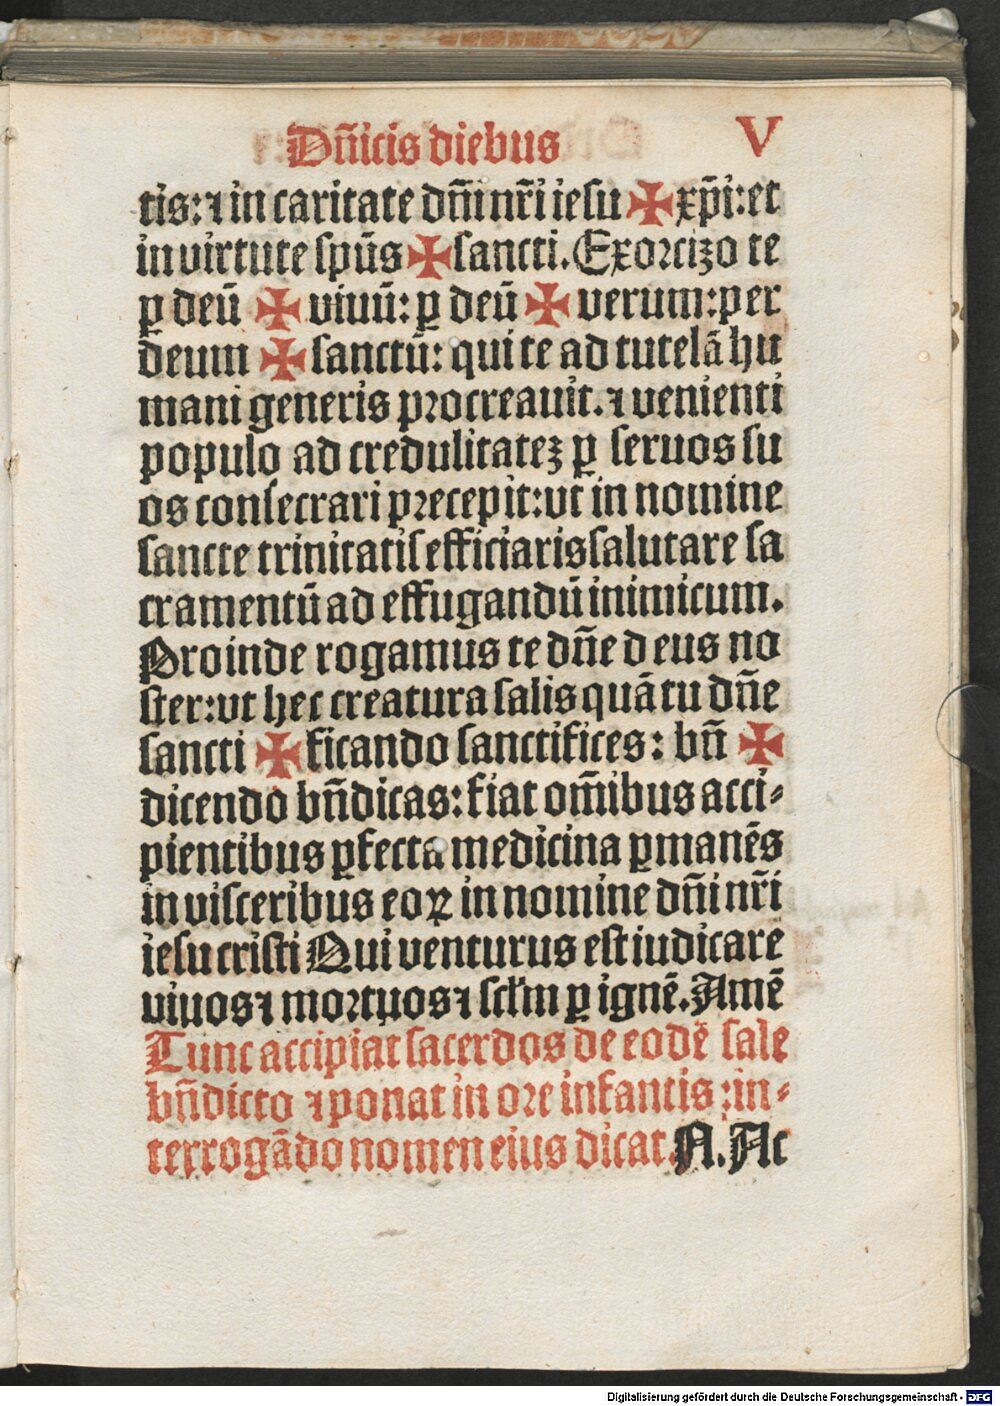 Dn̄icis diebus V
tis: ⁊ in caritate dn̄i nr̄i iesu ✠ xp̄i: et
in virtute spūs ✠ sancti. Exorcizo te
ꝑ deū ✠ viuū: ꝑ deū ✠ verum: per
deum ✠ sanctū: qui te ad tutelā hu
mani generis procreauit. ⁊ venienti
populo ad credulitatez ꝑ seruos su
os consecrari precepit: vt in nomine
sancte trinitatis efficiaris salutare sa
cramentū ad effugandū inimicum.
Proinde rogamus te dn̄e deus no
ster: vt hec creatura salis quā tu dn̄e
sancti ✠ ficando sanctifices: bn̄ ✠
dicendo bn̄dicas: fiat om̄ibus acci-
pientibus ꝑfecta medicina ꝑmanēs
in visceribus eoꝝ in nomine dn̄i nr̄i
iesu cristi Qui venturus est iudicare
viuos ⁊ mortuos ⁊ scl̄m ꝑ ignē. Amē
Tunc accipiat sacerdos de eodē sale
bn̄dicto ⁊ ponat in ore infantis: in-
terrogādo nomen eius dicat. N. Ac
Digitalisierung gefördert durch die Deutsche Forschungsgemeinschaft - DFG